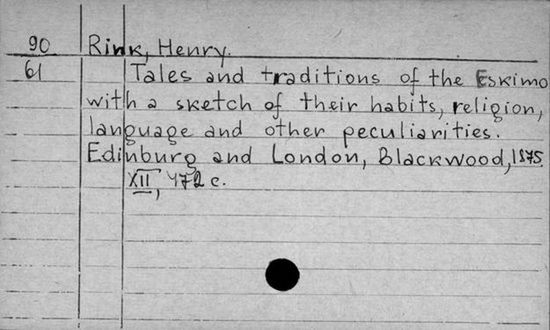 90 Rink, Henry.
61 Tales and traditions of the Eskimo
with a sketch of their habits, religion,
language and other peculiarities.
Edinburg and London, Blackwood, 1875.
XII, 472 c.